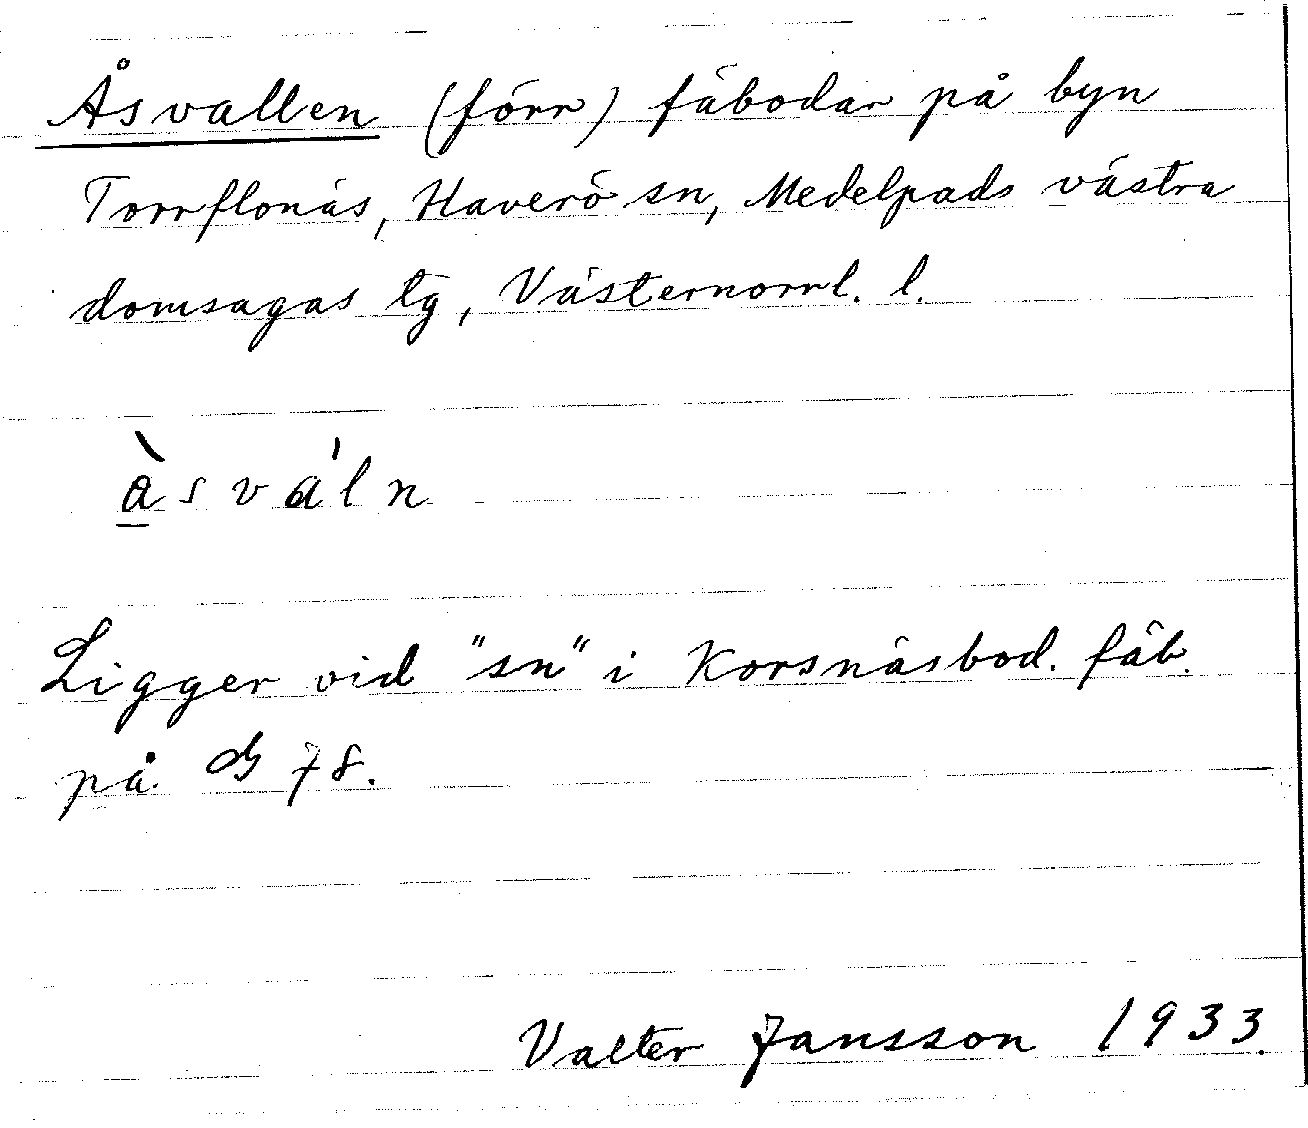 Åsvallen (förr) fäbodar på byn
Torrflonäs, Haverö sn, Medelpads västra
domsagas tg, Västernorrl. l.
à̱sváln
Ligger vid "sn" i Korsnäsbod. fäb.
på 78.
Valter Jansson 1933.